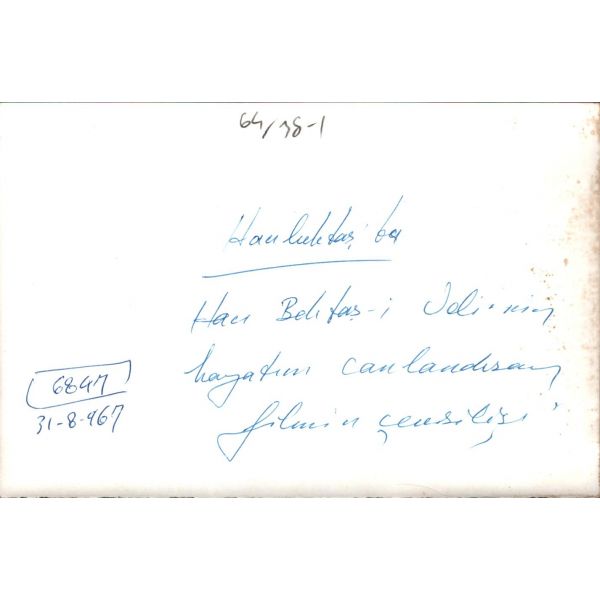 64/38-1
Hacıbektaş'ta
Hacı Bektaş-i Veli'nin
hayatını canlandıran
filmin çevrilişi
6847
31-8-967